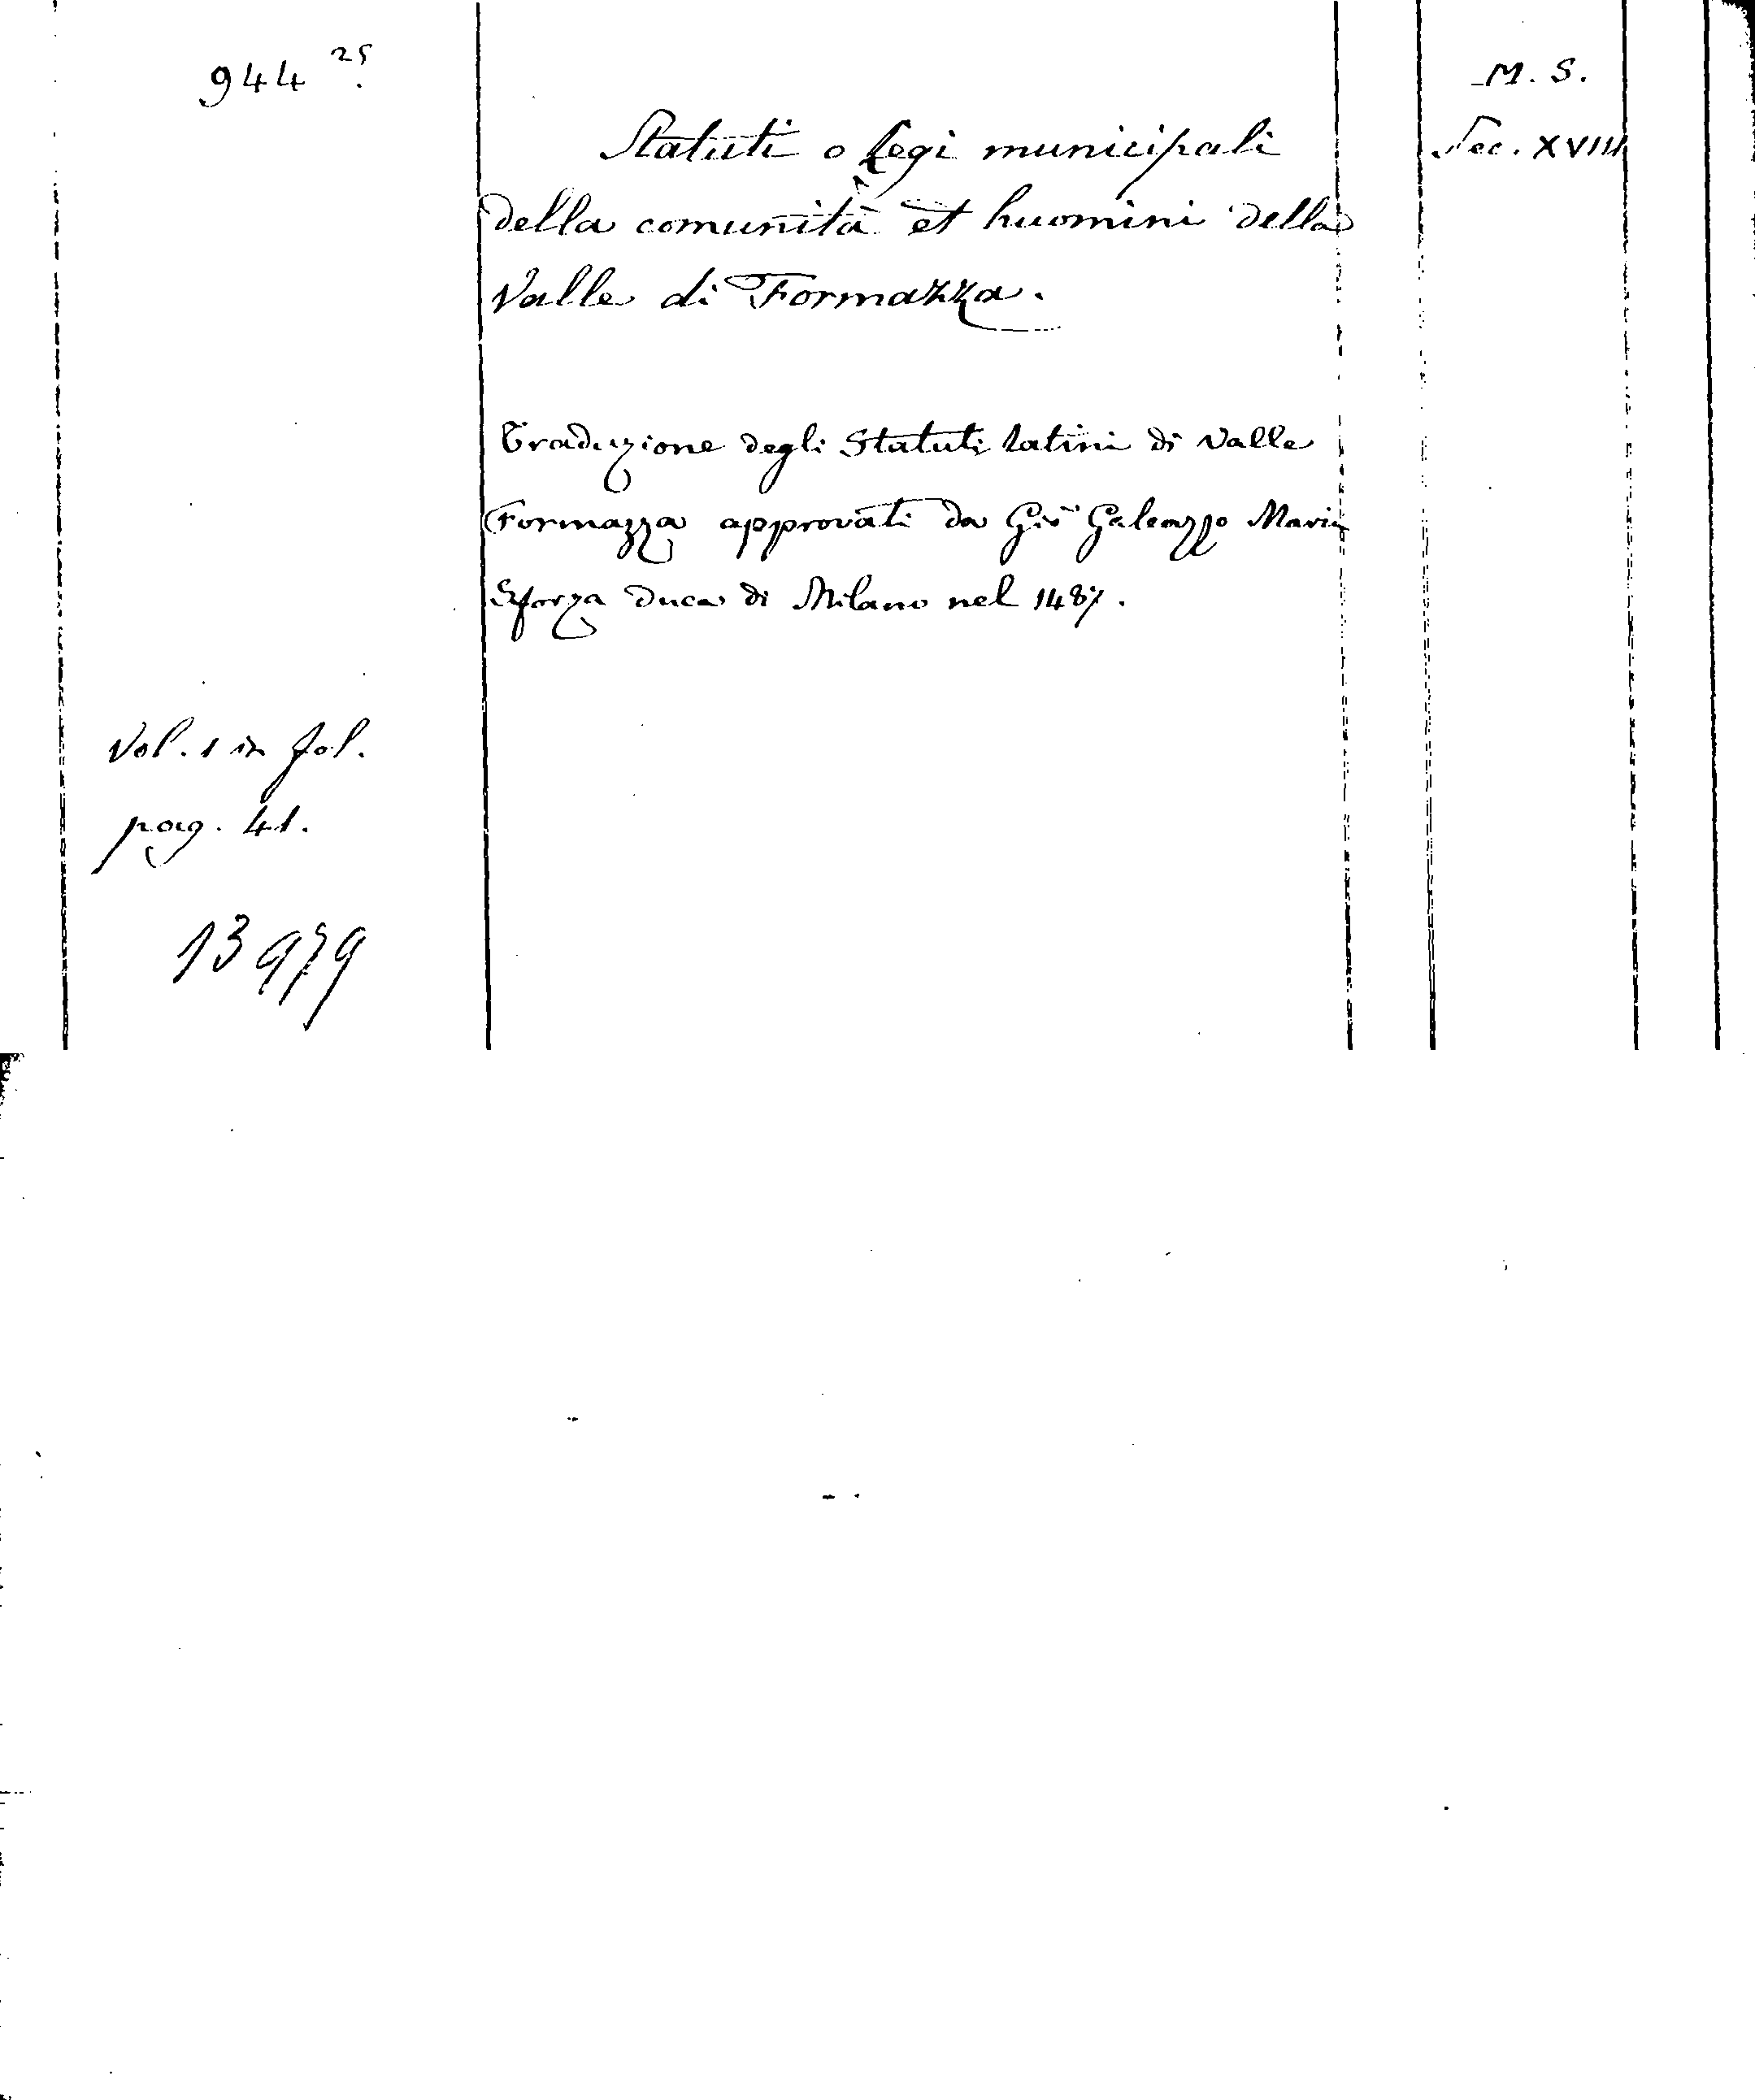 944 25.
M. S.
Sec. XVIII
Statuti o Legi municipali
della comunità et huomini della
Valle di Formazza.
Traduzione degli Statuti latini di Valle
Formazza approvati da Giō Galeazzo Maria
Sforza duca di Milano nel 1487.
Vol. 1 in fol.
pag. 41.
13979